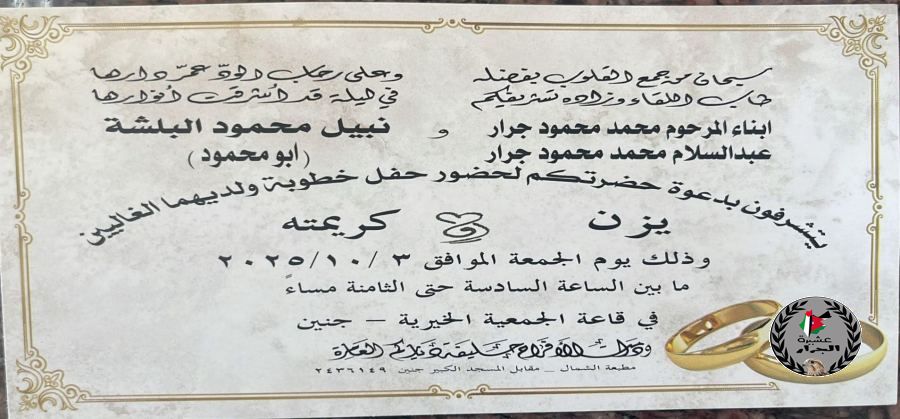 سبحان من جمع القلوب بفضله وعلى رحاب الودّ عمّر دارها
طاب اللقاء وزاده تشريفكم في ليلة قد أشرقت أنوارها
ابناء المرحوم محمد محمود جرار و نبيل محمود البلشة
عبدالسلام محمد محمود جرار (ابو محمود)
يتشرفون بدعوة حضرتكم لحضور حفل خطوبة ولديهما الغاليين
يزن و كريمته
وذلك يوم الجمعة الموافق ٢٠٢٥/١٠/٣
ما بين الساعة السادسة حتى الثامنة مساءً
في قاعة الجمعية الخيرية – جنين
ودامت الأفراح حليفة دياركم العامرة
مطبعة الشمال _ مقابل المسجد الكبير جنين ٢٤٣٦١٤٩
عشيرة
الجرار